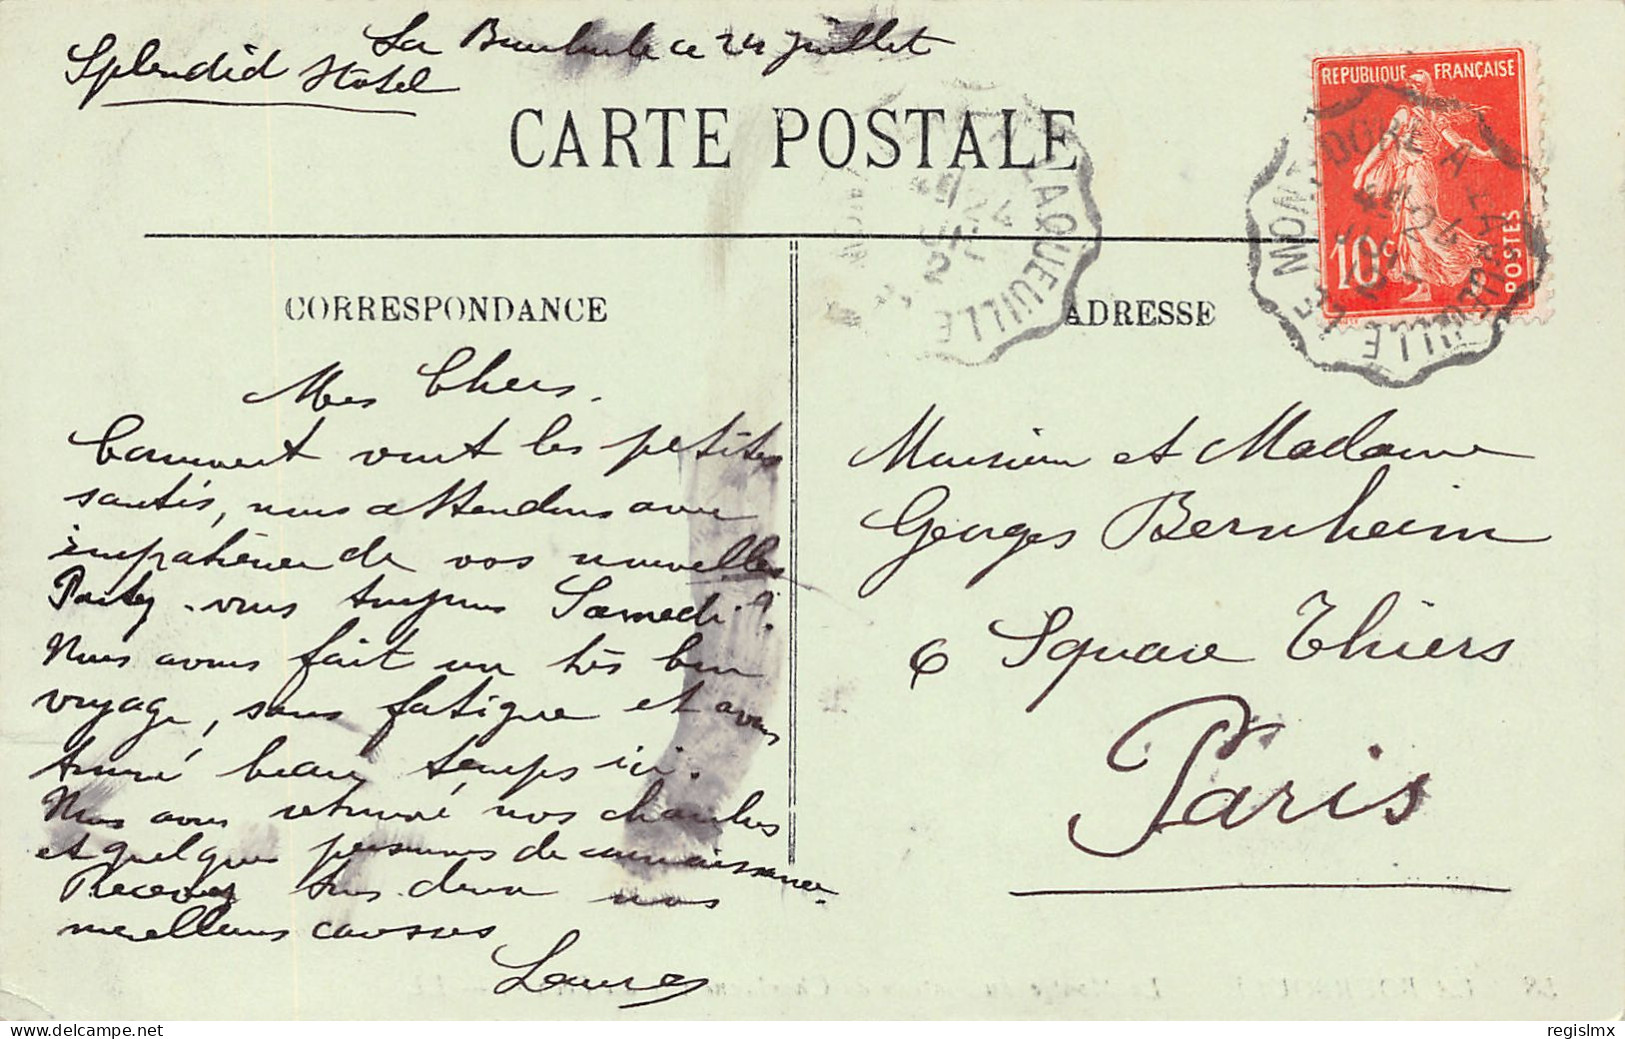 La Bourboule ce 24 juillet
Splendid Hotel
CARTE POSTALE
REPUBLIQUE FRANÇAISE
10c
POSTES
MONT-DORE A LAQUEUILLE
LAQUEUILLE
CORRESPONDANCE
ADRESSE
Mes Chers.
Comment vont les petites
santés, nous attendons avec
impatience de vos nouvelles
Partez-vous toujours Samedi?
Nous avons fait un très bon
voyage, sans fatigue et avons
trouvé beau temps ici.
Nous avons retrouvé nos chambres
et quelques personnes de connaissance.
Recevez tous deux nos
meilleures caresses
Laure
Monsieur et Madame
Georges Bernheim
6 Square Thiers
Paris
regislmx